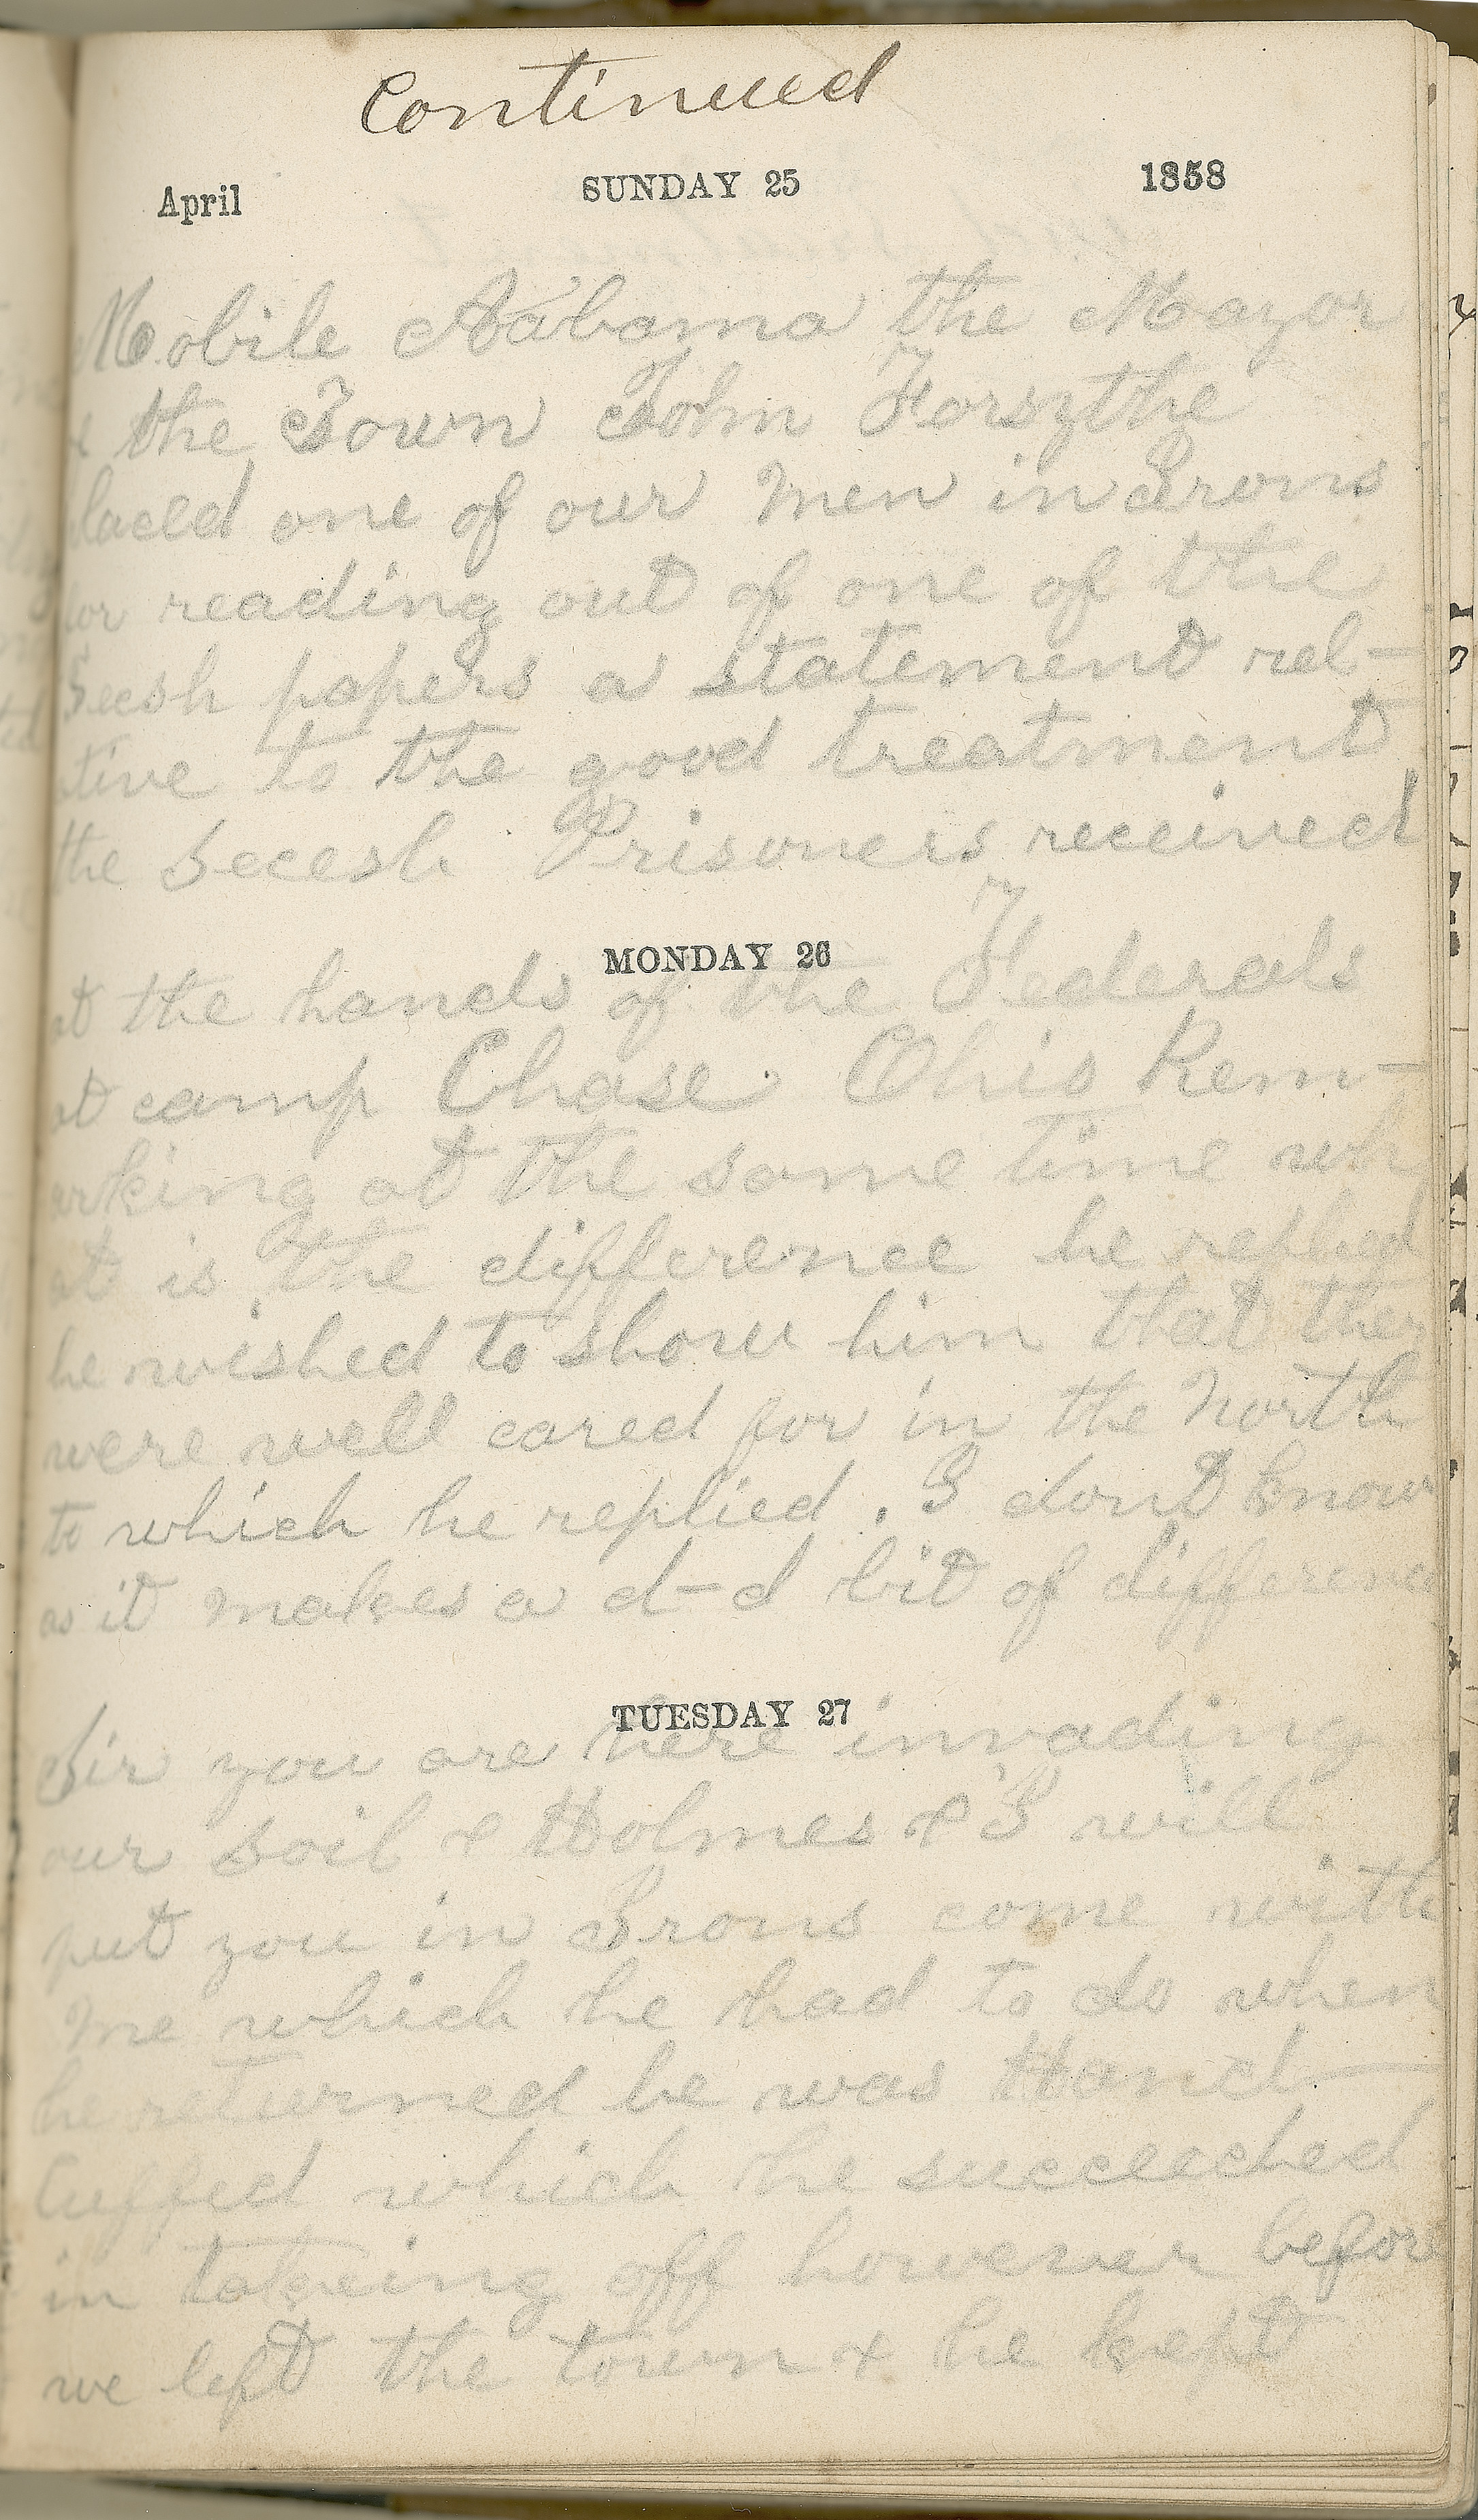 Continued
April SUNDAY 25 1858
Mobile Aabama the Mayor
& the Town John Forsythe
placed one of our Men in Irons
for reading out of one of the
Secsh papers a statement rel-
ative to the good treatment
the Secesh Prisoners received
MONDAY 26
at the hands of the Federals
at camp Chase Ohio Rem-
arking at the same time wh
at is the difference he replied
he wished to show him that they
were well cared for in the North
to which he replied. I dont know
as it makes a d-d bit of difference
TUESDAY 27
Sir you are here invading
our soil & Holmes & I will
put you in Irons come with
me which he had to do when
he returned he was Hand-
Cuffed which he succeeded
in takeing off however before
we left the town & he kept